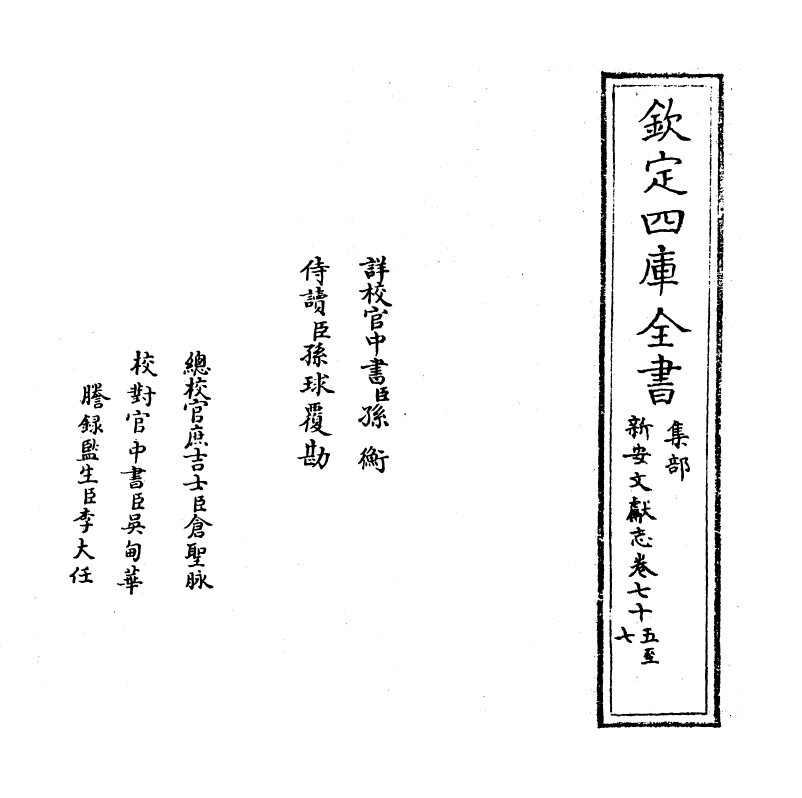 欽定四庫全書
集部
新安文獻志卷七十五至
七
詳校官中書臣孫衡
侍讀臣孫球覆勘
總校官庶吉士臣倉聖脉
校對官中書臣吳甸華
謄録監生臣李大任